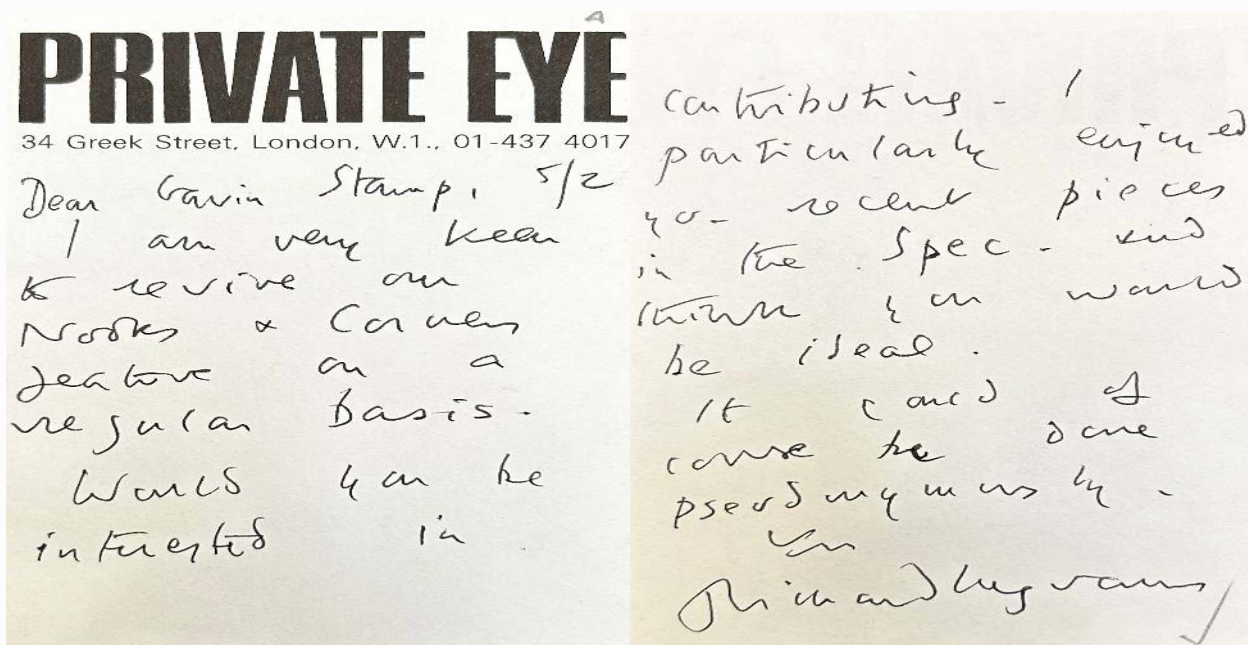 PRIVATE EYE
34 Greek Street, London, W.1., 01-437 4017
Dear Gavin Stamp, 5/2
I am very keen
to revive our
Nooks & Corners
feature on a
regular basis.
Would you be
interested in
contributing - I
particularly enjoyed
yr recent pieces
in the Spec - and
think you would
be ideal.
It could of
course be done
pseudonymously -
Yrs
Richard Ingrams